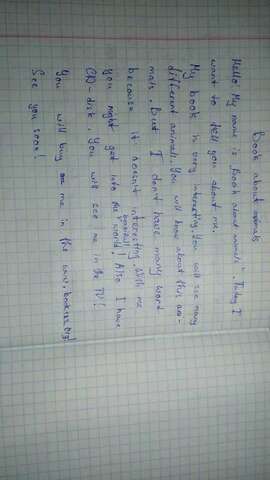 Book about animals
Hello! My name is "Book about animals". Today I
want to tell you about me.
My book is very interesting. You will see many
different animals. You will know about this ani-
mals. But I don't have many word
because it doesn't interesting. With me
you might get into the animals world! Also I have
CD-disk. You will see me in the TV!
You will buy me in the
See you soon!